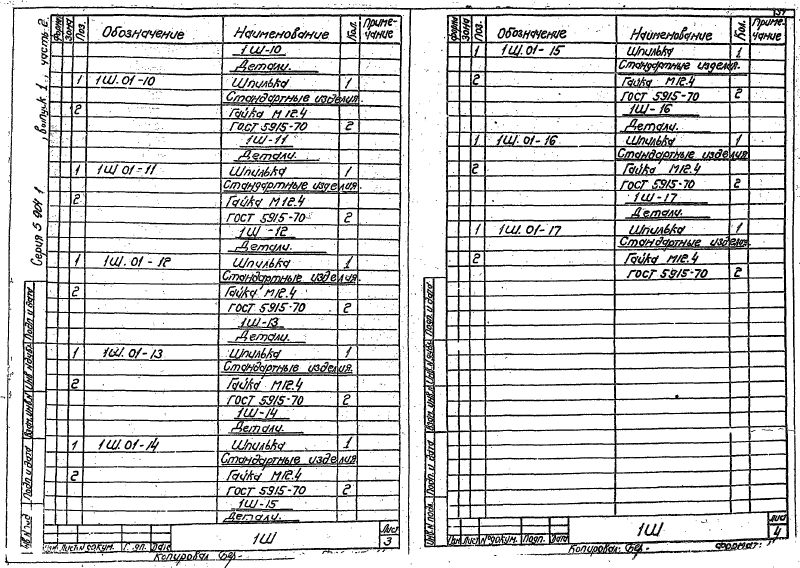 Серия 5.901-1, выпуск 1, часть 2.
Зона Поз. Обозначение Наименование Кол. Приме-
чание
1Ш-10
Детали.
1 1Ш.01-10 Шпилька 1
Стандартные изделия.
2 Гайка М12.4
ГОСТ 5915-70 2
1Ш-11
Детали.
1 1Ш.01-11 Шпилька 1
Стандартные изделия.
2 Гайка М12.4
ГОСТ 5915-70 2
1Ш-12
Детали.
1 1Ш.01-12 Шпилька 1
Стандартные изделия.
2 Гайка М12.4
ГОСТ 5915-70 2
1Ш-13
Детали.
1 1Ш.01-13 Шпилька 1
Стандартные изделия.
2 Гайка М12.4
ГОСТ 5915-70 2
1Ш-14
Детали.
1 1Ш.01-14 Шпилька 1
Стандартные изделия
2 Гайка М12.4
ГОСТ 5915-70 2
1Ш-15
Детали.
Подп. и дата
Подп. и дата
Лист № докум. Дата
1Ш
Лист
3
Копировал:
Зона Поз. Обозначение Наименование Кол. Приме-
чание
1 1Ш.01-15 Шпилька 1
Стандартные изделия.
2 Гайка М12.4
ГОСТ 5915-70 2
1Ш-16
Детали.
1 1Ш.01-16 Шпилька 1
Стандартные изделия
2 Гайка М12.4
ГОСТ 5915-70 2
1Ш-17
Детали.
1 1Ш.01-17 Шпилька 1
Стандартные изделия.
2 Гайка М12.4
ГОСТ 5915-70 2
Подп. и дата
Подп. и дата
Изм Лист № докум. Подп. Дата
1Ш
Лист
4
Копировал:
Формат: